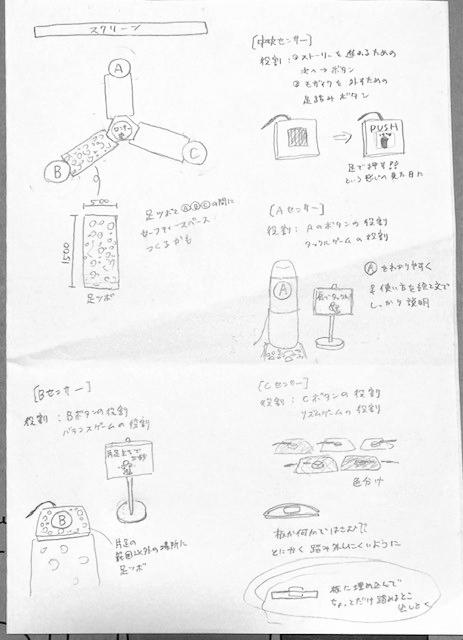 スクリーン
A
B
C
センサー
500
1500
足ツボ
足ツボとⒶⒷⒸの間に
セーフティースペース
つくるかも
[中央センサー]
役割:①ストーリーを進めるための
次へ→ボタン
②モザイクを外すための
足踏みボタン
PUSH
足で押す!!
という感じの見た目に
[Aセンサー]
役割:Aのボタンの役割
タックルゲームの役割
A
Ⓐをわかりやすく
使い方を絵と文で
しっかり説明
[Bセンサー]
役割:Bボタンの役割
バランスゲームの役割
片足立ちで
B
片足の
範囲以外の場所に
足ツボ
[Cセンサー]
役割:Cボタンの役割
リズムゲームの役割
色分け
板か何かではさむ??
とにかく踏み外しにくいように
板に埋め込んで
ちょっとだけ踏めるとこ
出しとく